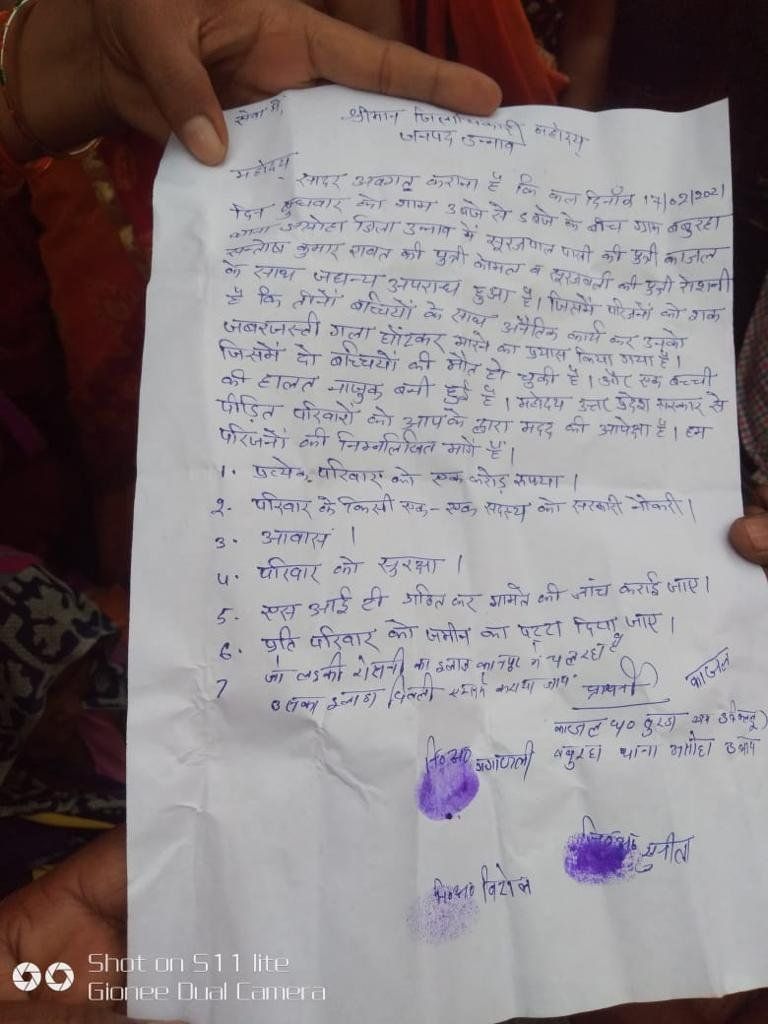 सेवा में,
श्रीमान जिलाधिकारी महोदय
जनपद उन्नाव
महोदय
सादर अवगत कराना है कि कल दिनाँक 17/02/2021
दिन बुधवार को शाम 3 बजे से 5 बजे के बीच ग्राम बबुरहा
थाना असोहा जिला उन्नाव में सूरजपाल पासी की पुत्री काजल
सन्तोष कुमार रावत की पुत्री कोमल व सूरजबली की पुत्री रोशनी
के साथ जघन्य अपराध हुआ है। जिसमें परिजनों को शक
है कि तीनों बच्चियों के साथ अनैतिक कार्य कर उनको
जबरजस्ती गला घोंटकर मारने का प्रयास किया गया है।
जिसमें दो बच्चियों की मौत हो चुकी है। और एक बच्ची
की हालत नाजुक बनी हुई है। महोदय उत्तर प्रदेश सरकार से
पीड़ित परिवारों को आपके द्वारा मदद की आपेक्षा है। हम
परिजनों की निम्नलिखित मांगें हैं।
1. प्रत्येक परिवार को एक करोड़ रुपया।
2. परिवार के किसी एक-एक सदस्य को सरकारी नौकरी।
3. आवास।
4. परिवार को सुरक्षा।
5. एस आई टी गठित कर मामले की जांच कराई जाए।
6. प्रति परिवार को जमीन का पट्टा दिया जाए।
7 जो लडकी रोसनी का इलाज कानपुर में चल रहा है
उसका इलाज दिल्ली कराया जाय
प्रार्थी काजल
काजल
बबुरहा थाना असोहा
नि०अ०
नि०अ० सुनीता
नि०अ०
Shot on S11 lite
Gionee Dual Camera